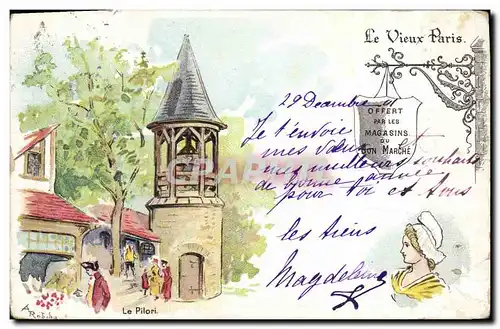 Le Vieux Paris.
29 Decembre
OFFERT
PAR LES
MAGASINS
DU
BON MARCHÉ
Je t'envoie
mes vœux et
mes meilleurs souhaits
de bonne année
pour toi et tous
les tiens
Magdeleine
A Robida
Le Pilori.